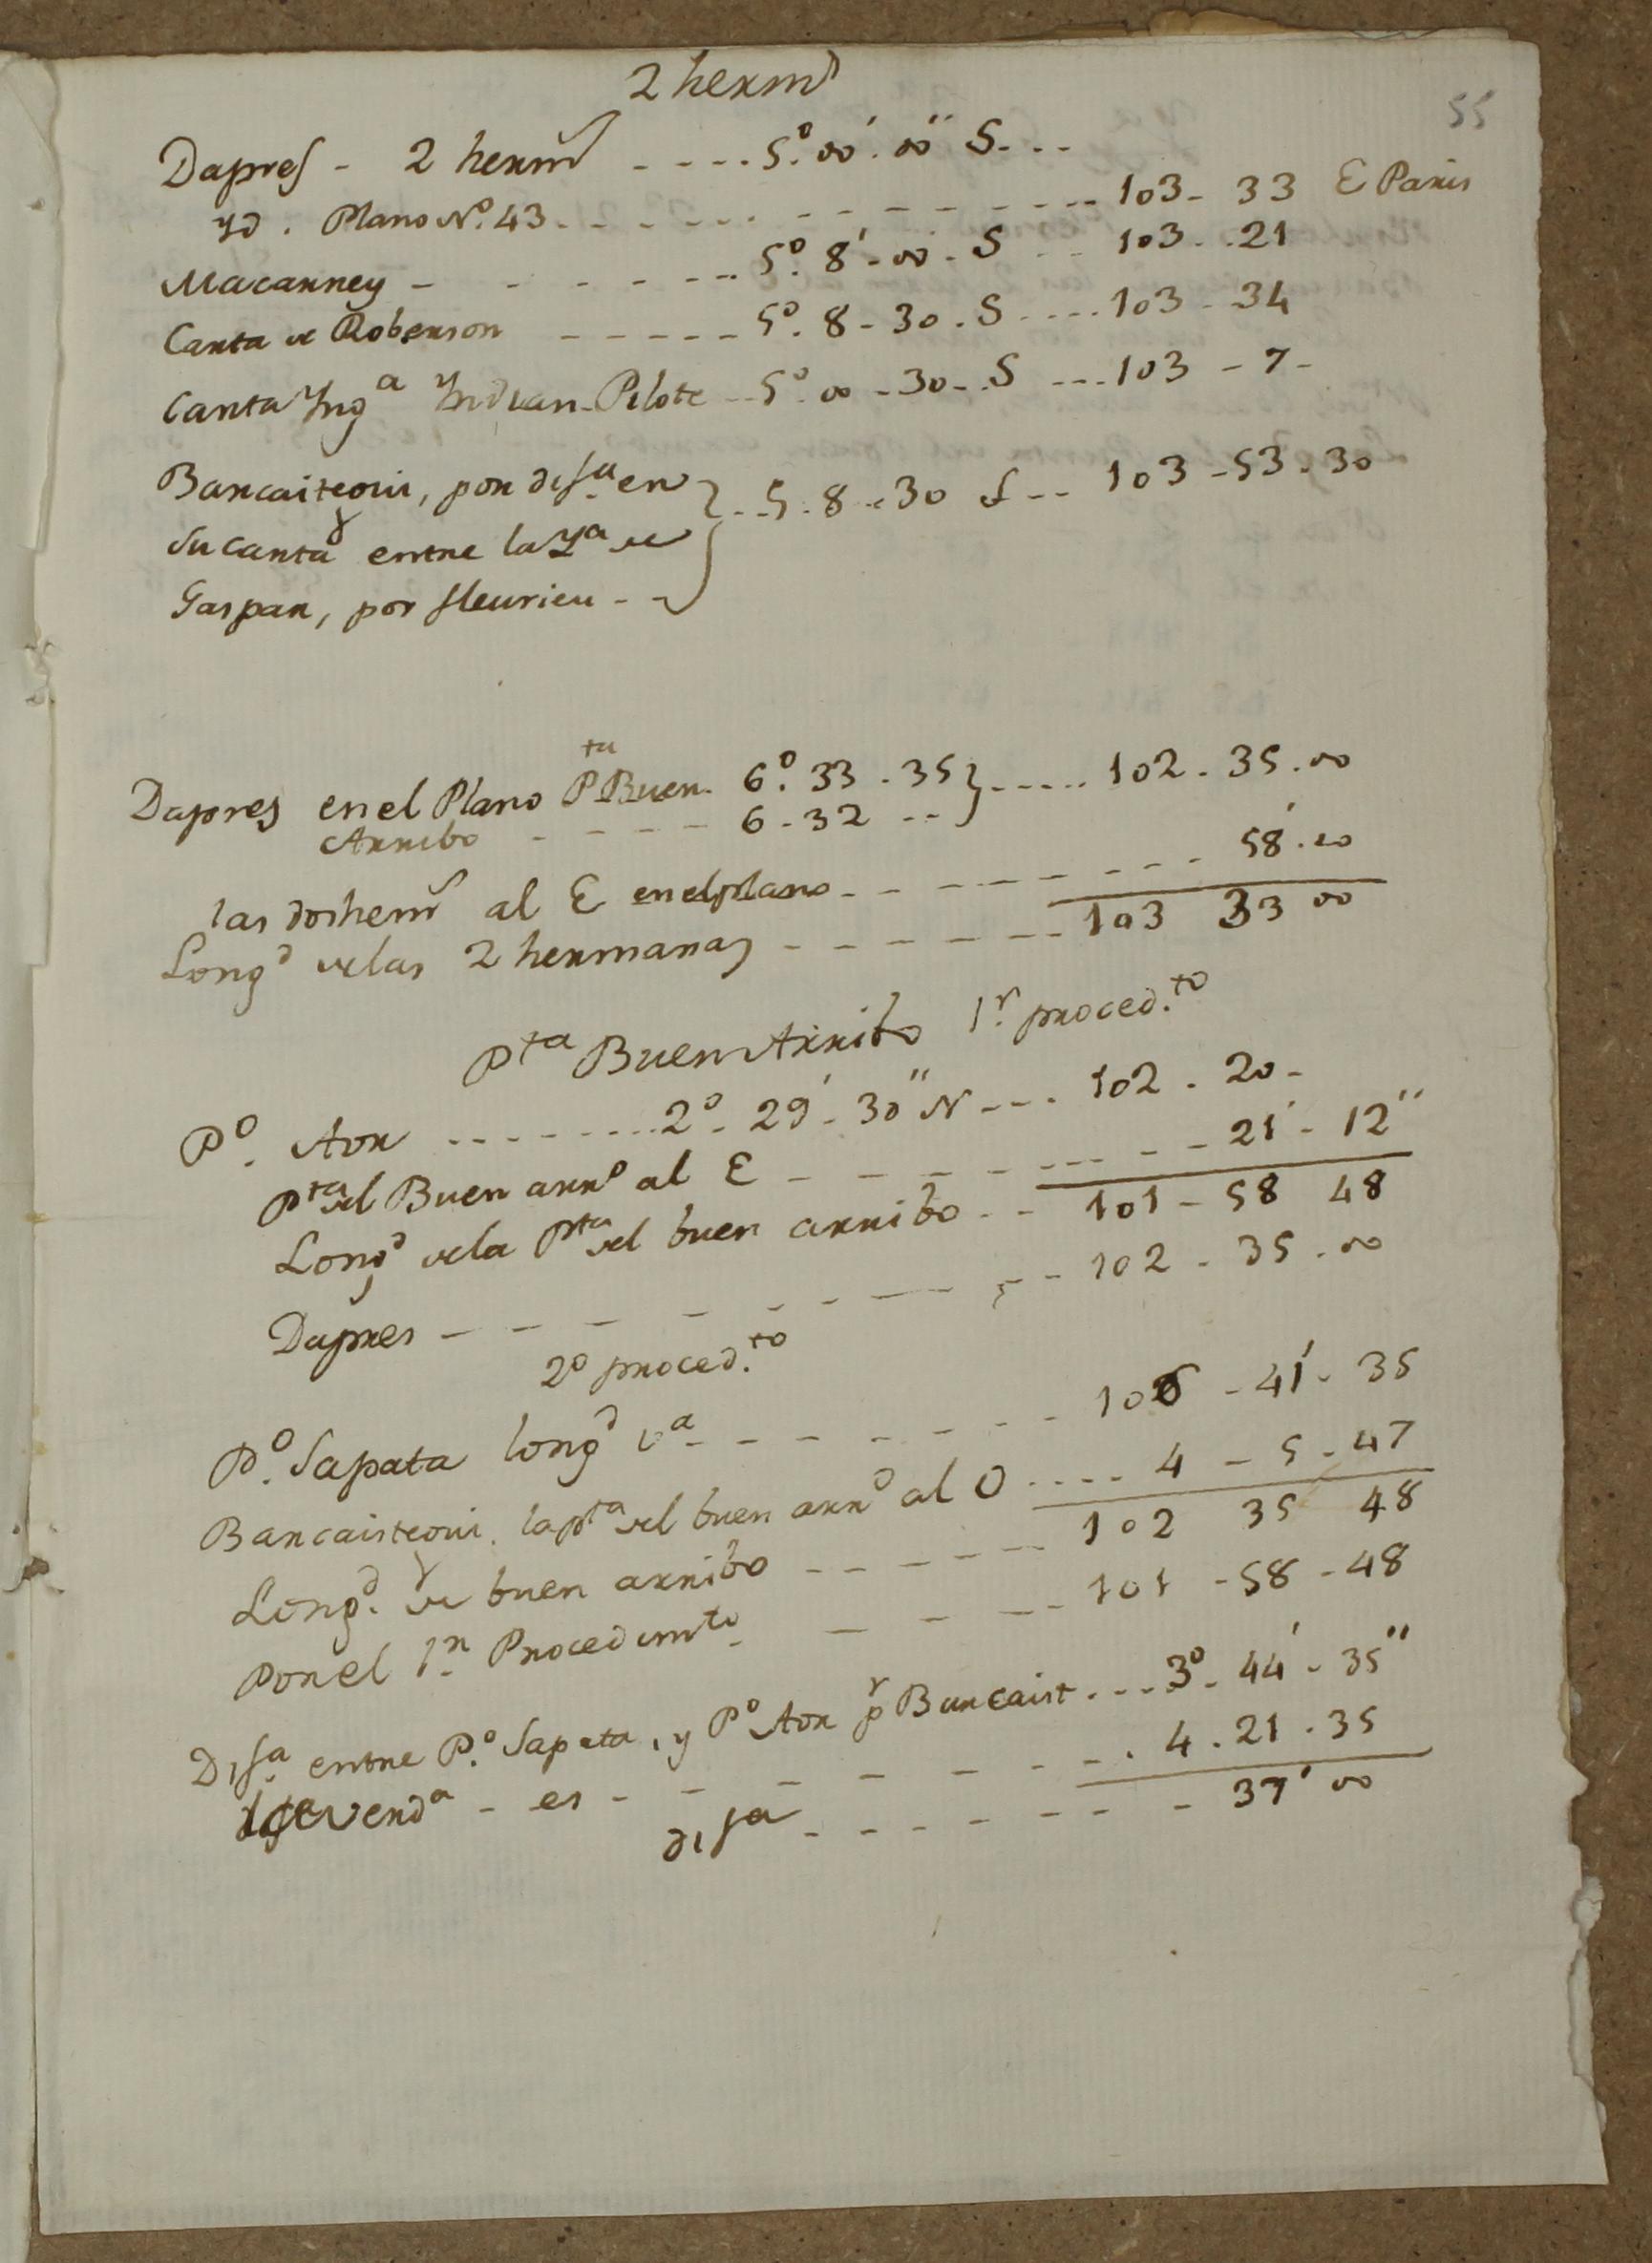 2 herm.s
55
Dapres - 2 herm.s - - - - 5.º 00'. 00'' S. - - -
Yd. Plano N.º 43. - - - - - - - - - - - 103 - 33 E Paris
Macarney - - - - - - - 5.º 8' - 00 - S - - 103 - . 21
Carta de Roberson - - - - - 5.º 8 - 30 . S - - - - 103 - 34
Carta Yng.a Yndian Pilote - - 5.º 00 - 30 - . S - - - 103 - 7 -
Bancaisteoui, por dif.a en } - - 5 . 8 - . 30 S - - 103 - 53 . 30
su carta entre la Y.a de
Gaspar, por fleurieu - -
Dapres en el Plano P.ta Buen. 6.º 33 . 35 } - - - - - 102 . 35 . 00
Arribo - - - - 6 - 32 - -
las dos herm.s al E en el plano - - - - - - - - 58' . 00
Long.d de las 2 hermanas - - - - - - - 103 33 00
P.ta Buen Arribo 1.r proced.to
P.º Aor - - - - - - - - - 2º - 29' - 30'' N - - - . 102 . 20 -
P.ta del Buen arr.o al E - - - - - - - - - - 21' - 12''
Long.d de la P.ta del buen arribo - - 101 - 58 48
Dapres - - - - - - - - - - - 102 - 35 . 00
2º proced.to
P.º Sapata long.d v.a - - - - - - - - 106 - 41' - 35
Bancaisteoui. la p.ta del buen arr.o al O - - - - 4 - 5 - 47
Long.d de buen arribo - - - - - - - 102 35 48
Por el 1.r Procedim.to - - - - 101 - 58 - 48
Dif.a entre P.º Sapata, y P.º Aor p.r Bancaist - - - - 3º - 44' - 35''
verd.a - es - - - - - - - - 4 . 21 . 35
dif.a - - - - - - - - 37' 00